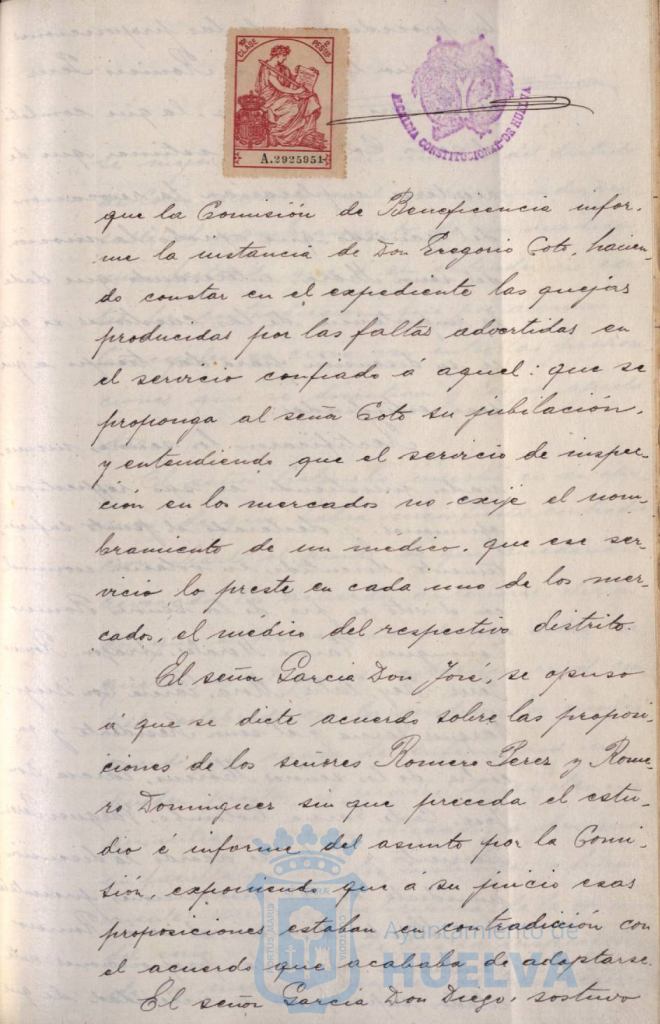 10ª CLASE
2 PESETAS
A.2925951
ALCALDIA CONSTITUCIONAL DE HUELVA
que la Comisión de Beneficencia infor-
me la instancia de Don Gregorio Coto, hacien-
do constar en el expediente las quejas
producidas por las faltas advertidas en
el servicio confiado á aquel: que se
proponga al señor Coto su jubilación,
y entendiendo que el servicio de inspec-
ción en los mercados no exije el nom-
bramiento de un médico, que ese ser-
vicio lo preste en cada uno de los mer-
cados, el médico del respectivo distrito.
El señor Garcia Don José, se opuso
á que se dicte acuerdo sobre las proposi-
ciones de los señores Romero Perez y Rome-
ro Dominguez sin que preceda el estu-
dio é informe del asunto por la Comi-
sión, exponiendo que á su juicio esas
proposiciones estaban en contradición con
el acuerdo que acababa de adoptarse.
El señor Garcia Don Diego, sostuvo
Ayuntamiento de
HUELVA